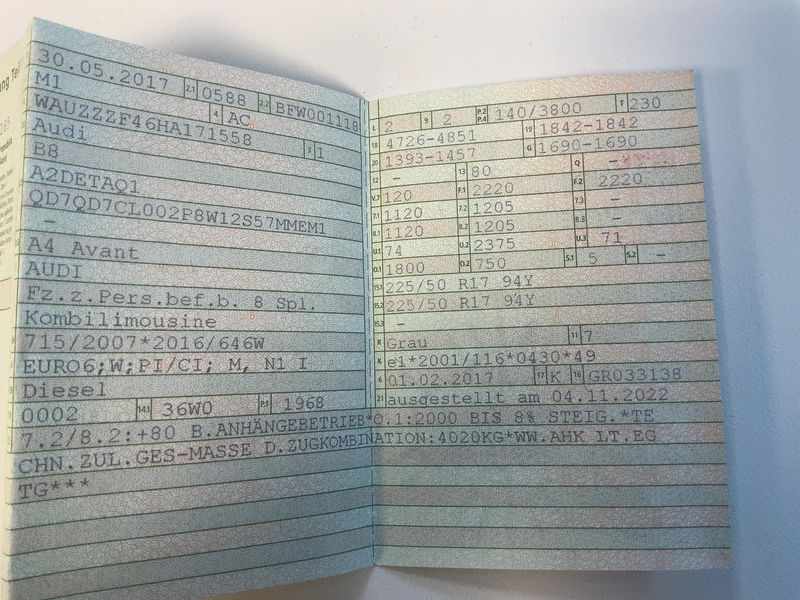 30.05.2017 2.1 0588 2.2 BFW001118
M1 4 AC
WAUZZZF46HA171558 3 1
Audi
B8
A2DETAQ1
QD7QD7CL002P8W12S57MMEM1
–
A4 Avant
AUDI
Fz.z.Pers.bef.b. 8 Spl.
Kombilimousine
715/2007*2016/646W
EURO6;W;PI/CI; M, N1 I
Diesel
0002 14.1 36W0 P.1 1968
L 2 9 2 P.2 P.4 140/3800 T 230
18 4726-4851 19 1842-1842
20 1393-1457 G 1690-1690
12 – 13 80 Q –
V.7 120 F.1 2220 F.2 2220
7.1 1120 7.2 1205 7.3 –
8.1 1120 8.2 1205 8.3 –
U.1 74 U.2 2375 U.3 71
O.1 1800 O.2 750 S.1 5 S.2 –
15.1 225/50 R17 94Y
15.2 225/50 R17 94Y
15.3 –
R Grau 11 7
K e1*2001/116*0430*49
6 01.02.2017 17 K 16 GR033138
21 ausgestellt am 04.11.2022
7.2/8.2:+80 B.ANHÄNGEBETRIEB*O.1:2000 BIS 8% STEIG.*TE
CHN.ZUL.GES-MASSE D.ZUGKOMBINATION:4020KG*WW.AHK LT.EG
TG***